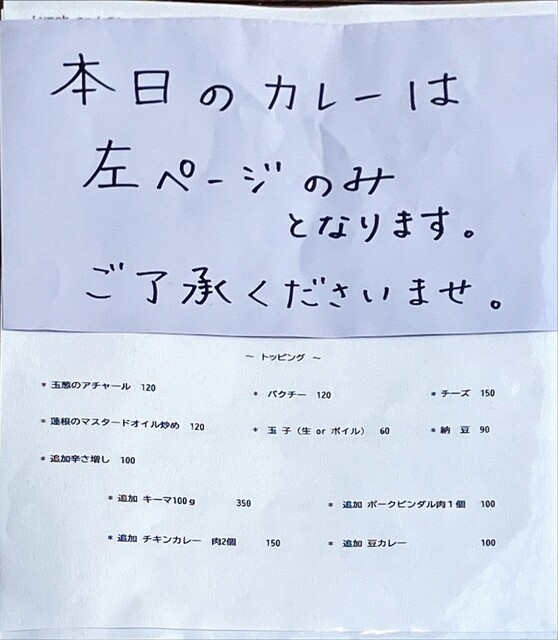 本日のカレーは
左ページのみ
となります。
ご了承くださいませ。
～ トッピング ～
* 玉葱のアチャール 120 * パクチー 120 * チーズ 150
* 蓮根のマスタードオイル炒め 120 * 玉子（生 or ボイル） 60 * 納豆 90
* 追加辛さ増し 100
* 追加 キーマ100g 350 * 追加 ポークビンダル肉1個 100
* 追加 チキンカレー 肉2個 150 * 追加 豆カレー 100